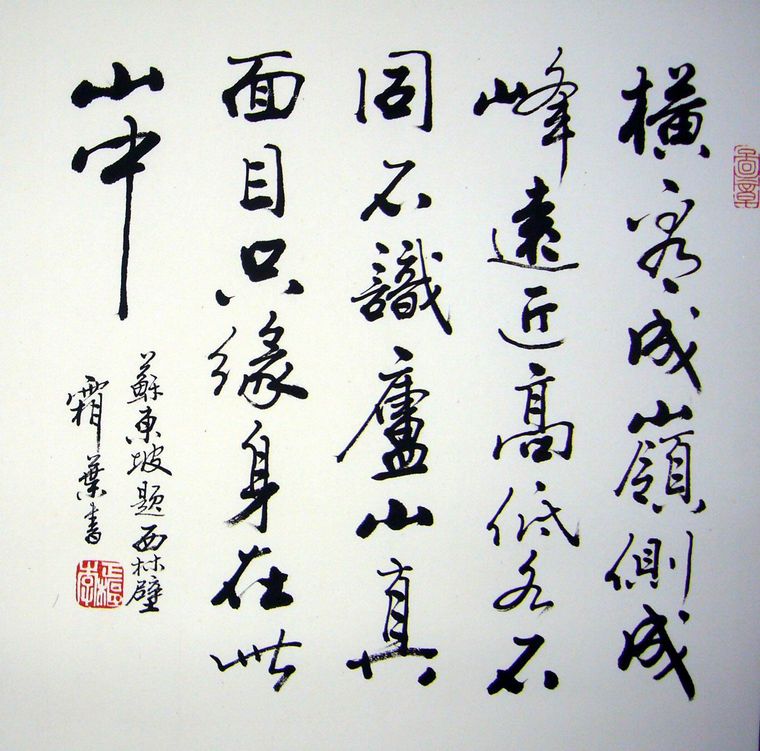 橫看成嶺側成
峰遠近高低各不
同不識廬山真
面目只緣身在此
山中
蘇東坡題西林壁
霜葉書